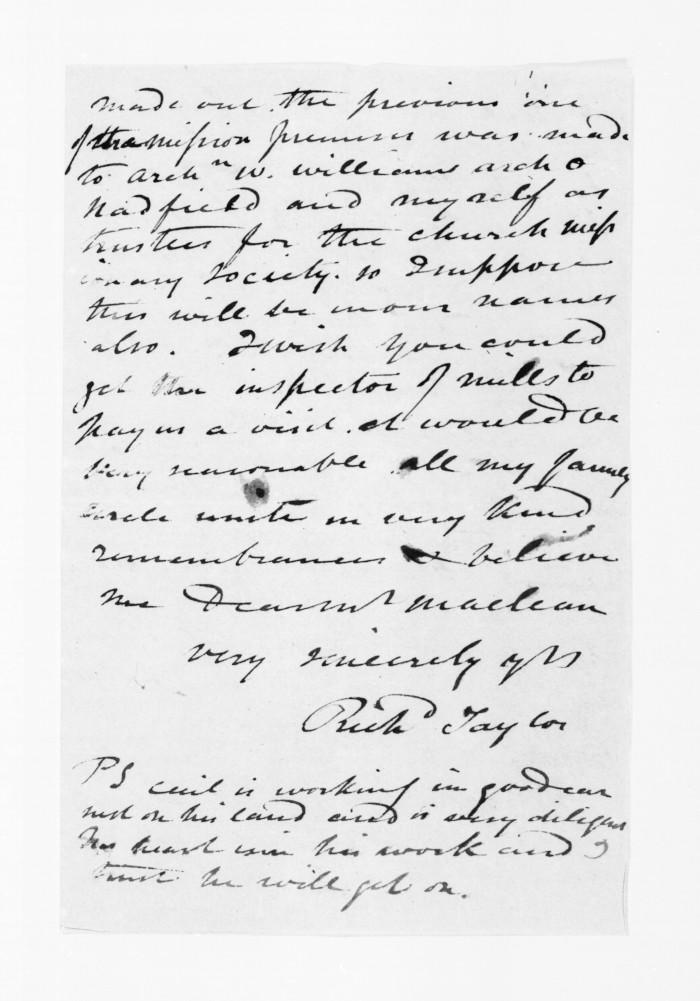 made out. the previous one
of the mission premises was made
to archn W. williams arch
Hadfield and myself as
trustees for the church miss
ionary society. so I suppose
this will be in our names
also. I wish you could
get the inspector of mills to
pay us a visit. it would be
very reasonable all my family
circle unite in very kind
remembrances & believe
me Dear mr maclean
very sincerely yrs
Richd Taylor
PS cecil is working in good ear
nest on his land and is very diligent
his heart is in his work and I
trust he will get on.